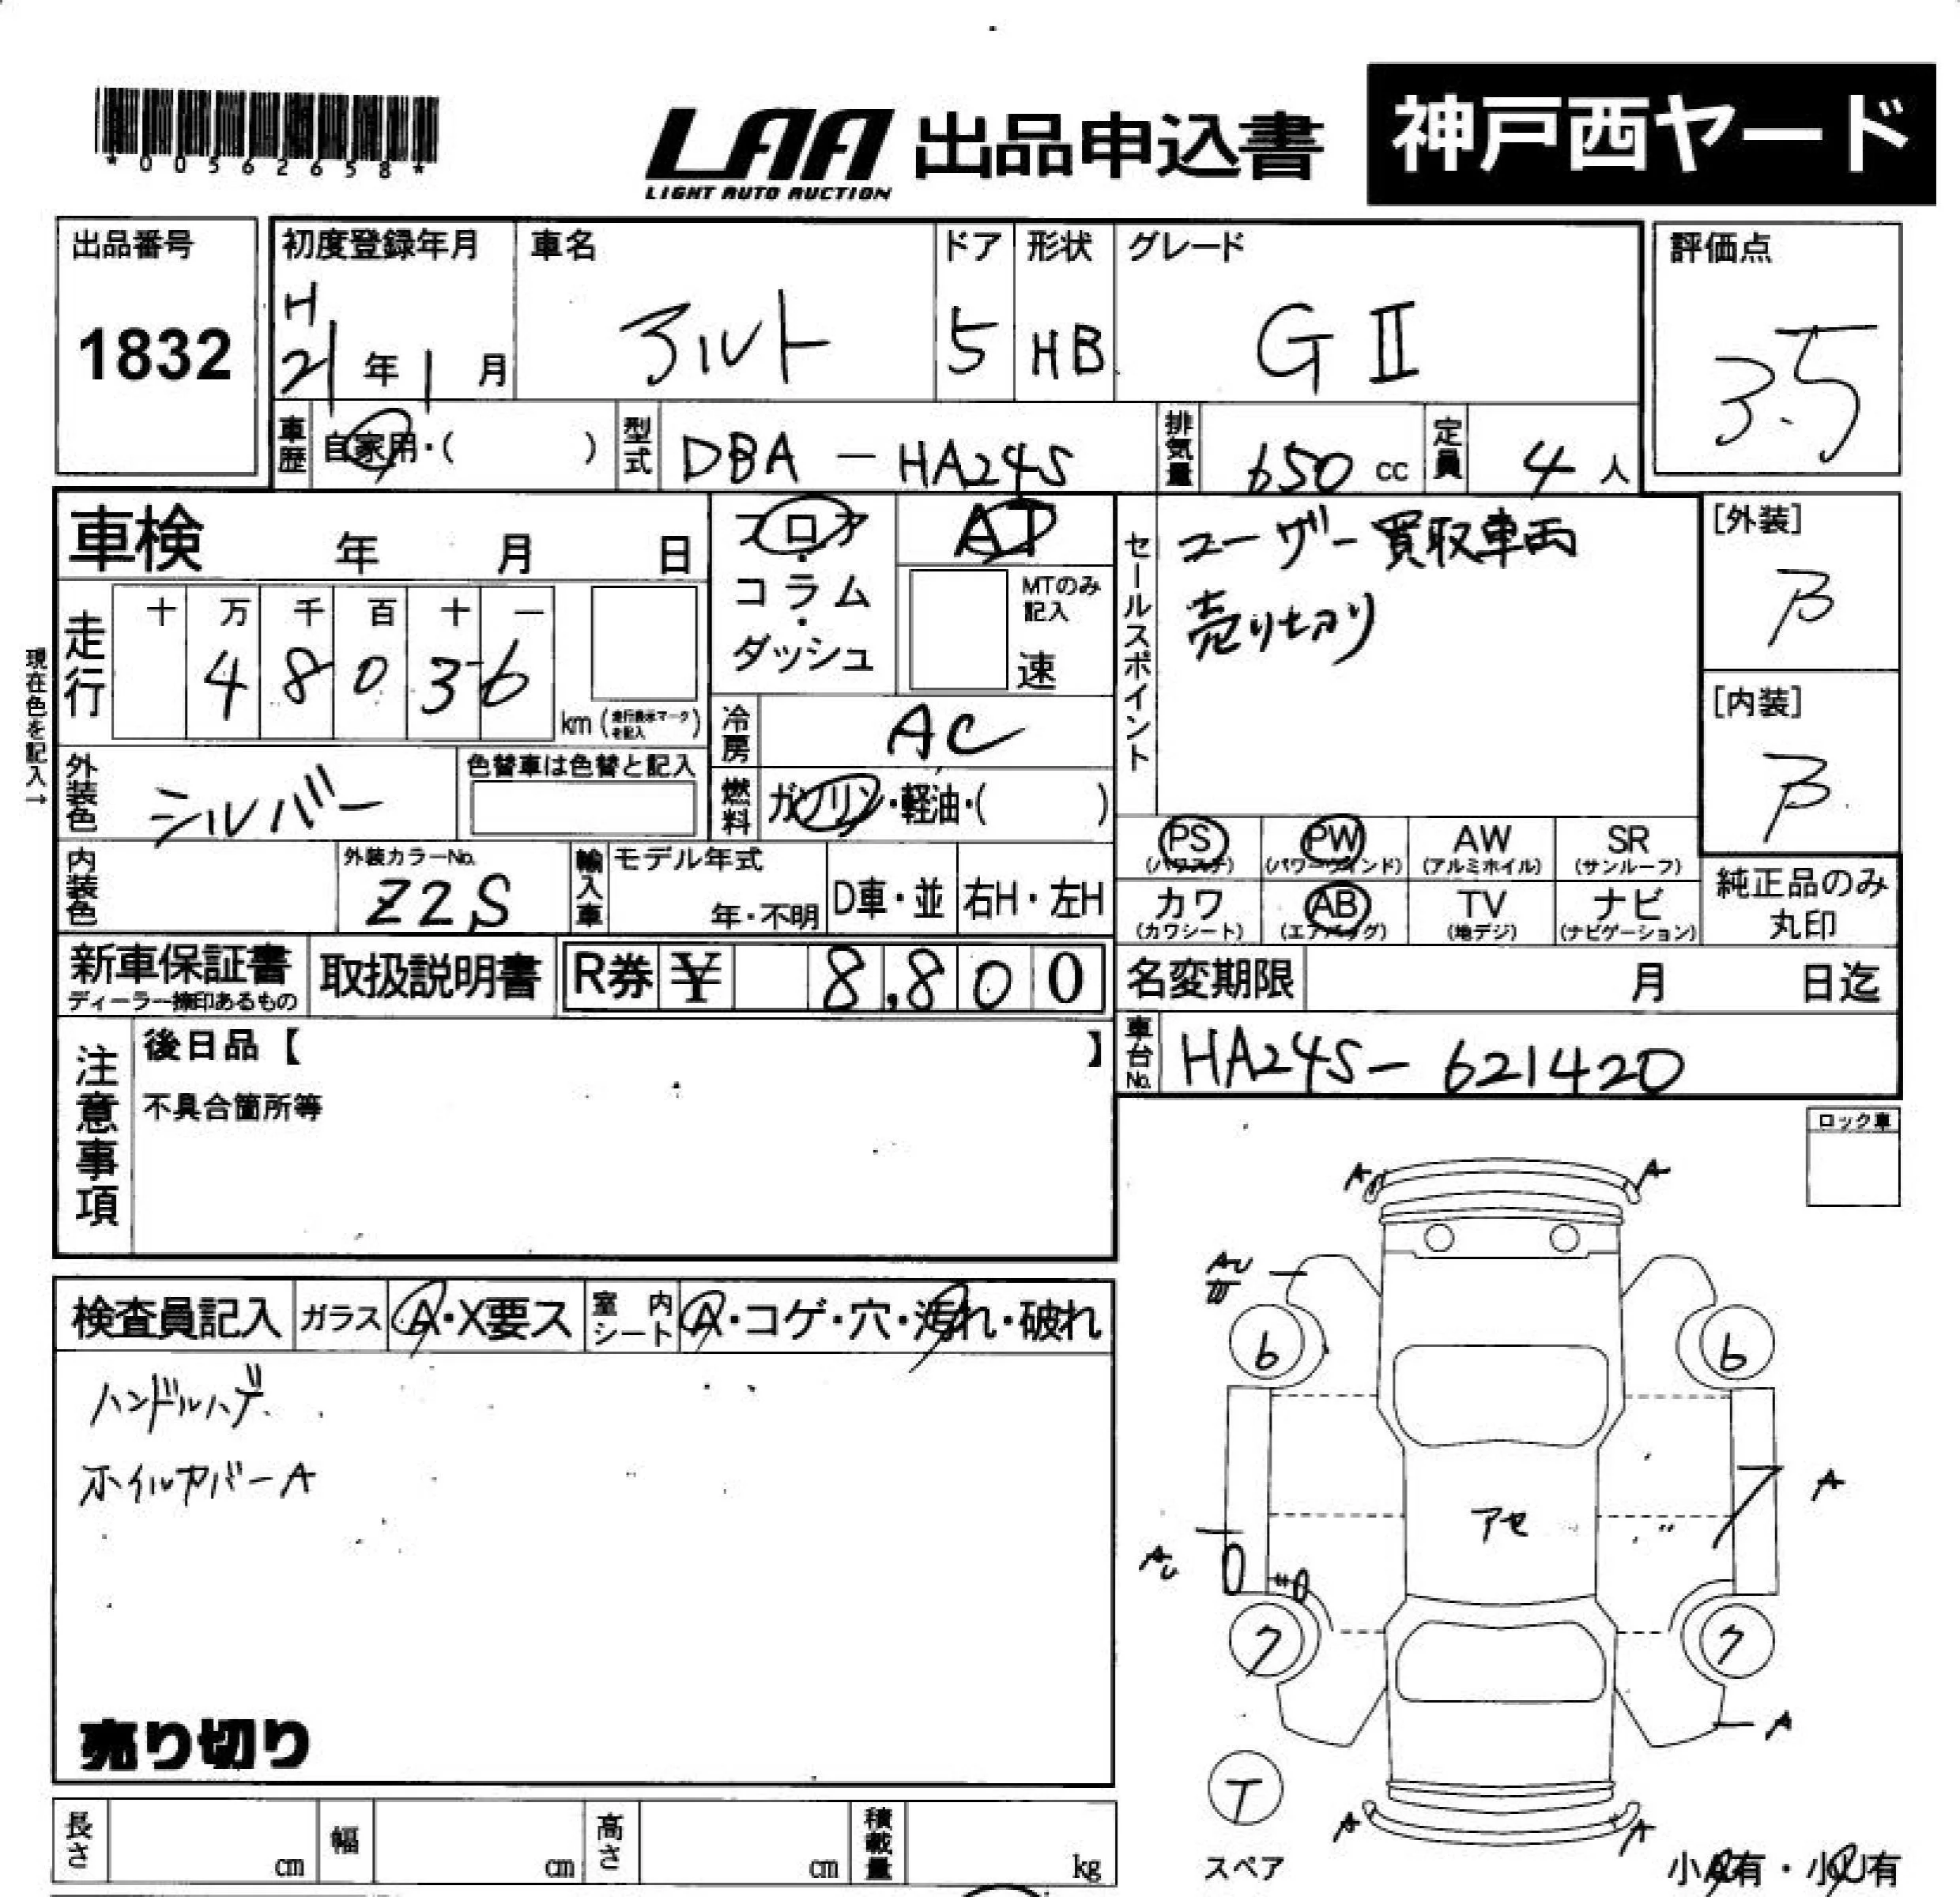 *00562658*
LAA 出品申込書 神戸西ヤード
LIGHT AUTO AUCTION
出品番号 1832
初度登録年月 H21年1月
車名 アルト
ドア 5
形状 HB
グレード GⅡ
評価点 3.5
車歴 自家用・( )
型式 DBA-HA24S
排気量 650cc
定員 4人
車検 年 月 日
フロア・コラム・ダッシュ
AT
MTのみ記入 速
セールスポイント
ユーザー買取車両
売り切り
[外装] B
[内装] B
現在色を記入→
走行 十 万 千 百 十 一
4 8 0 3 6 km (走行表示マークを記入)
冷房 AC
外装色 シルバー
色替車は色替と記入
燃料 ガソリン・軽油・( )
内装色
外装カラーNo. Z2S
輸入車 モデル年式 年・不明
D車・並 右H・左H
PS (パワステ) PW (パワーウインド) AW (アルミホイル) SR (サンルーフ)
カワ (カワシート) AB (エアバッグ) TV (地デジ) ナビ (ナビゲーション)
純正品のみ丸印
新車保証書 ディーラー捺印あるもの
取扱説明書
R券 ¥ 8,800
名変期限 月 日迄
車台No. HA24S-621420
注意事項
後日品【 】
不具合箇所等
ロック車
検査員記入 ガラス A・X要ス 室内シート A・コゲ・穴・汚れ・破れ
ハンドルハゲ
ホイルカバーA
売り切り
A A
AU
W
6 6
A
アセ
AU
7 7
A
T
スペア
A A
長さ cm 幅 cm 高さ cm 積載量 kg
小A有・小U有